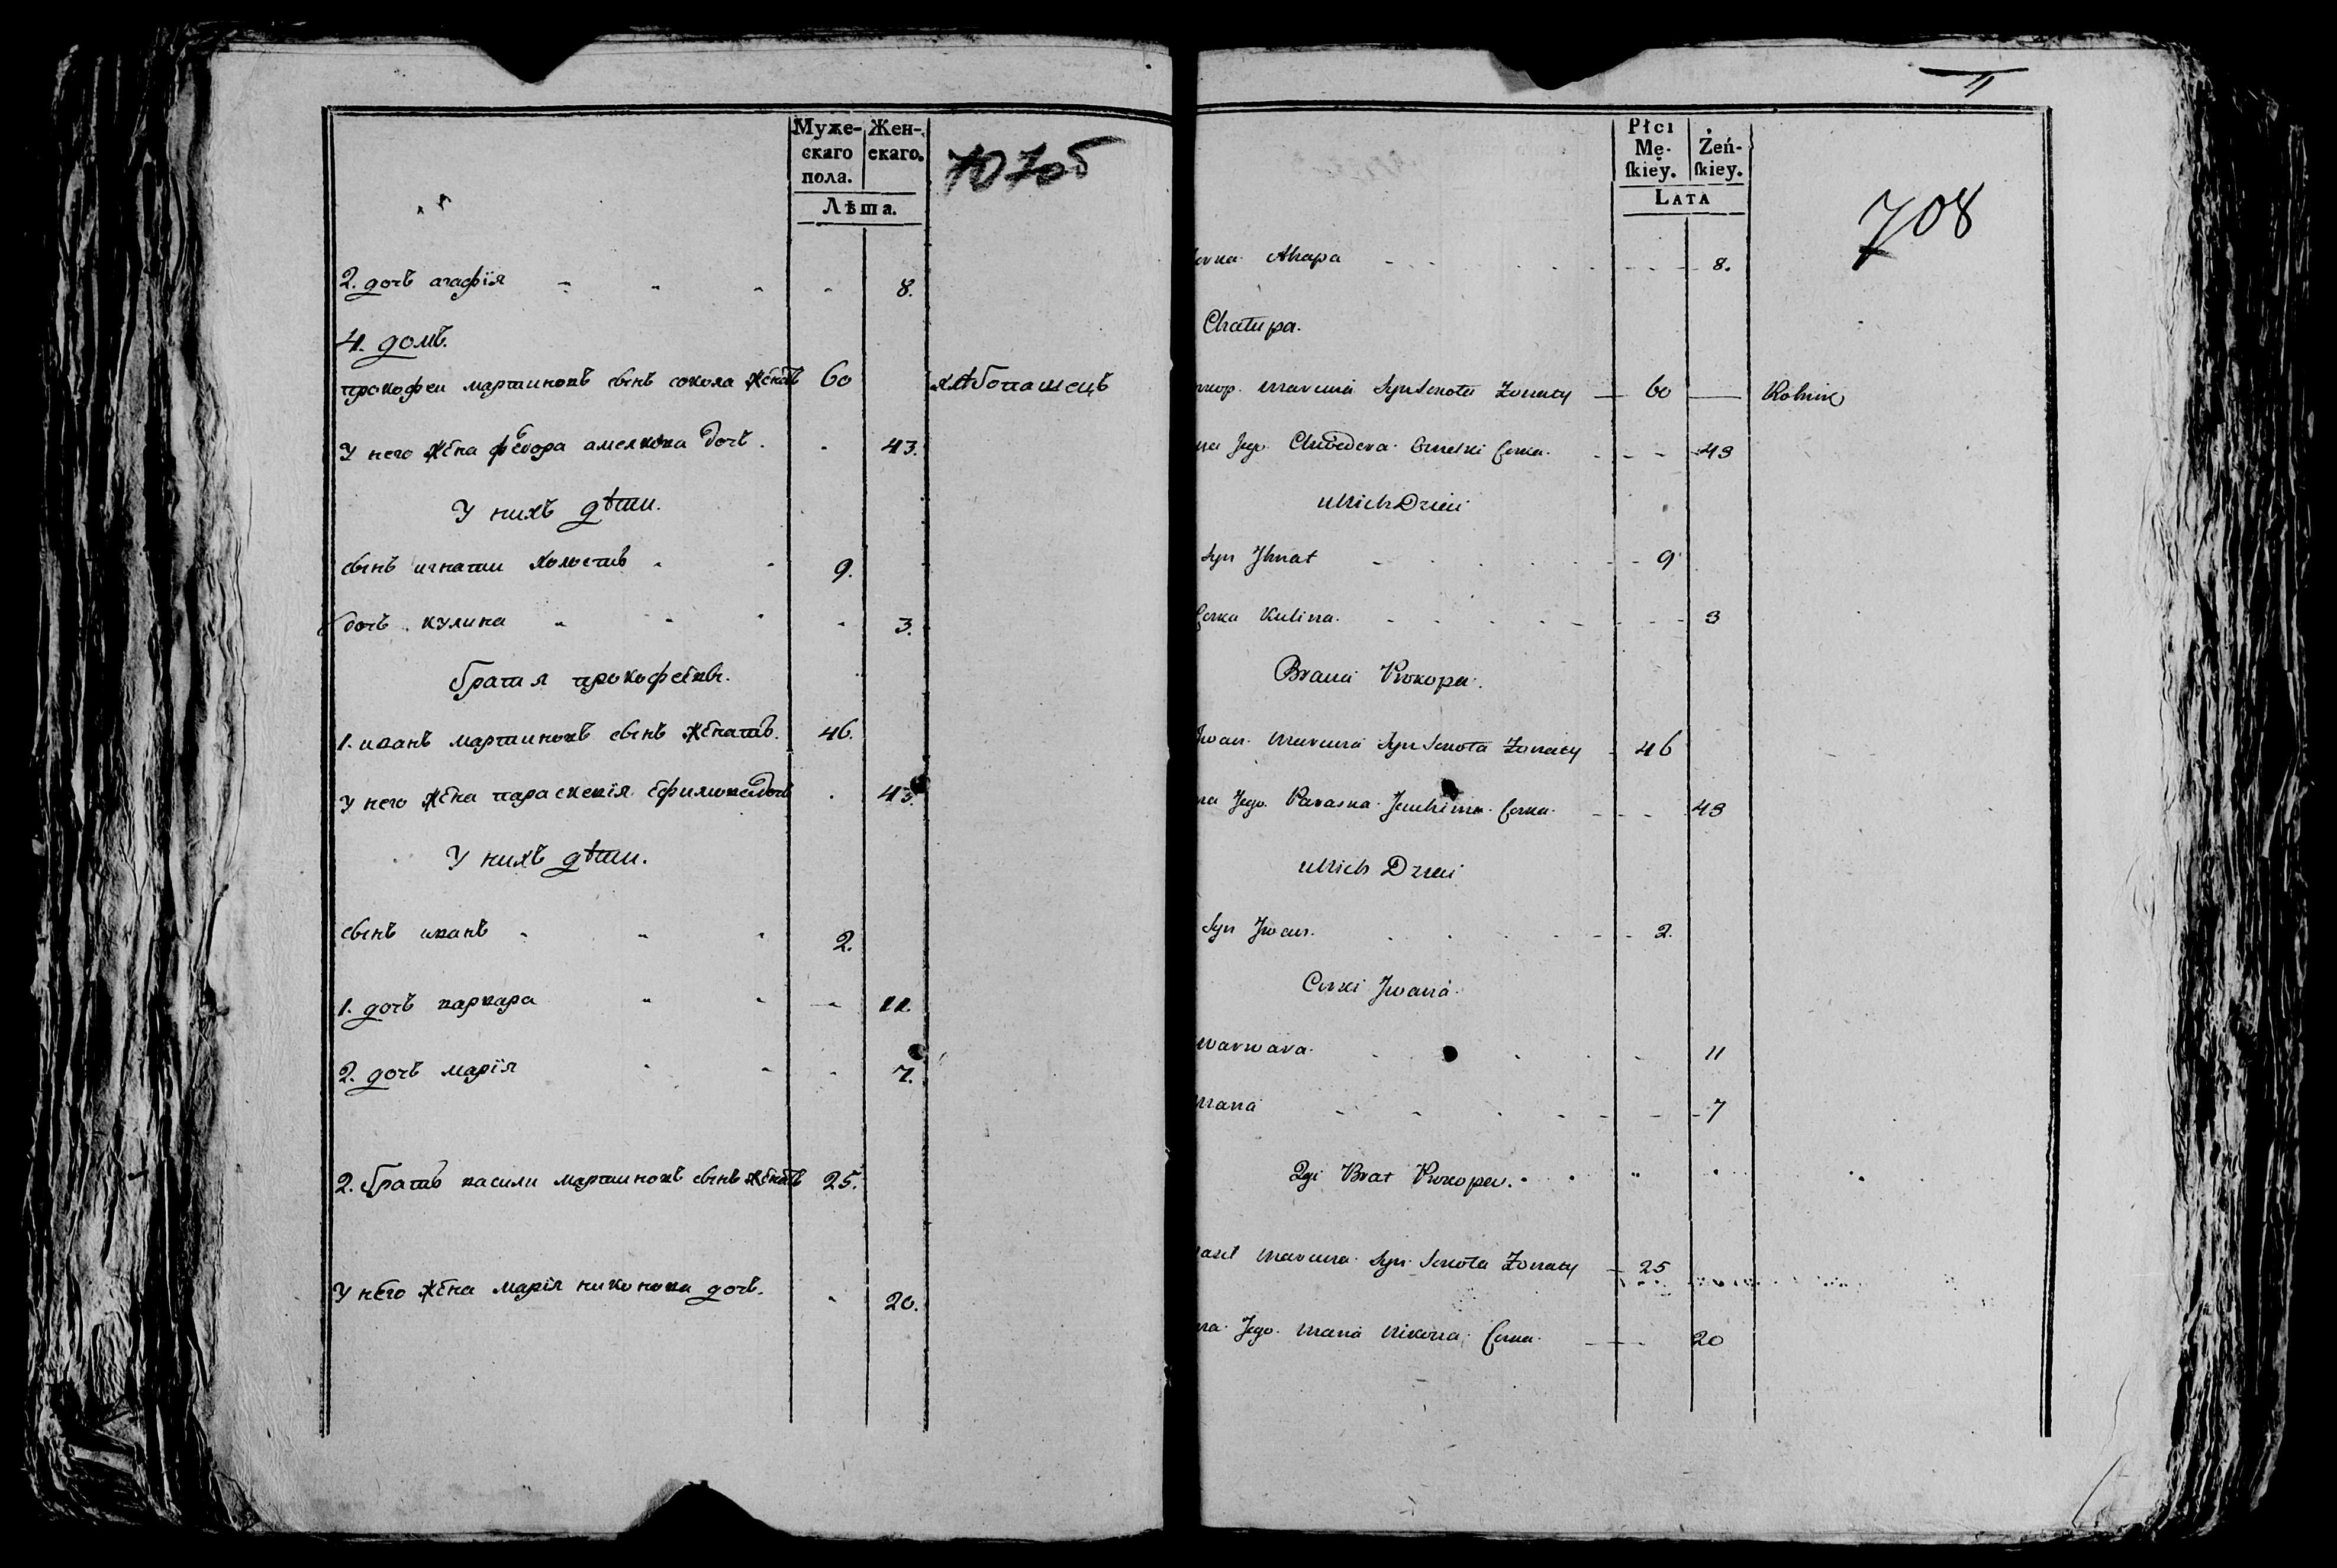 Муже-
скаго
пола.
Жен-
скаго.
Лѣта.
707об
2. дочъ агафїя 8.
4. домъ.
прокофеи мартиновъ сынъ сокола жената 60 хлѣбопашецъ
У него жена федора амелкова дочь. 43.
У нихъ дѣти.
сынъ игнатии холостъ 9.
дочъ кулина 3.
братия прокофеевы.
1. иванъ мартиновъ сынъ женатъ. 46.
У него жена параскевїя ефимова дочь 43.
У нихъ дѣти.
сынъ иванъ 2.
1. дочъ варвара 11.
2. дочъ марїя 7.
2. братъ васили мартиновъ сынъ женатъ 25.
У него жена марїя никонова дочъ. 20.
Płci
Mę-
skiey.
Żeń-
skiey.
LATA
708
Ahapa 8.
Chałupa.
Marcina Syn Żonaty 60 Rolnik
Jego Chwedora Corka. 43
u Nich Dzieci
Syn Ihnat 9
Corka Kulina. 3
Bracia Prokopa.
Iwan Marcina Syn Żonaty 46
Jego Paraska Jauchima Corka. 43
u Nich Dzieci
Syn Iwan. 2.
Curki Iwana.
Warwara. 11
Maria 7
2gi Brat Prokopa.
Marcina Syn Żonaty 25
Jego Maria Nikona Corka 20